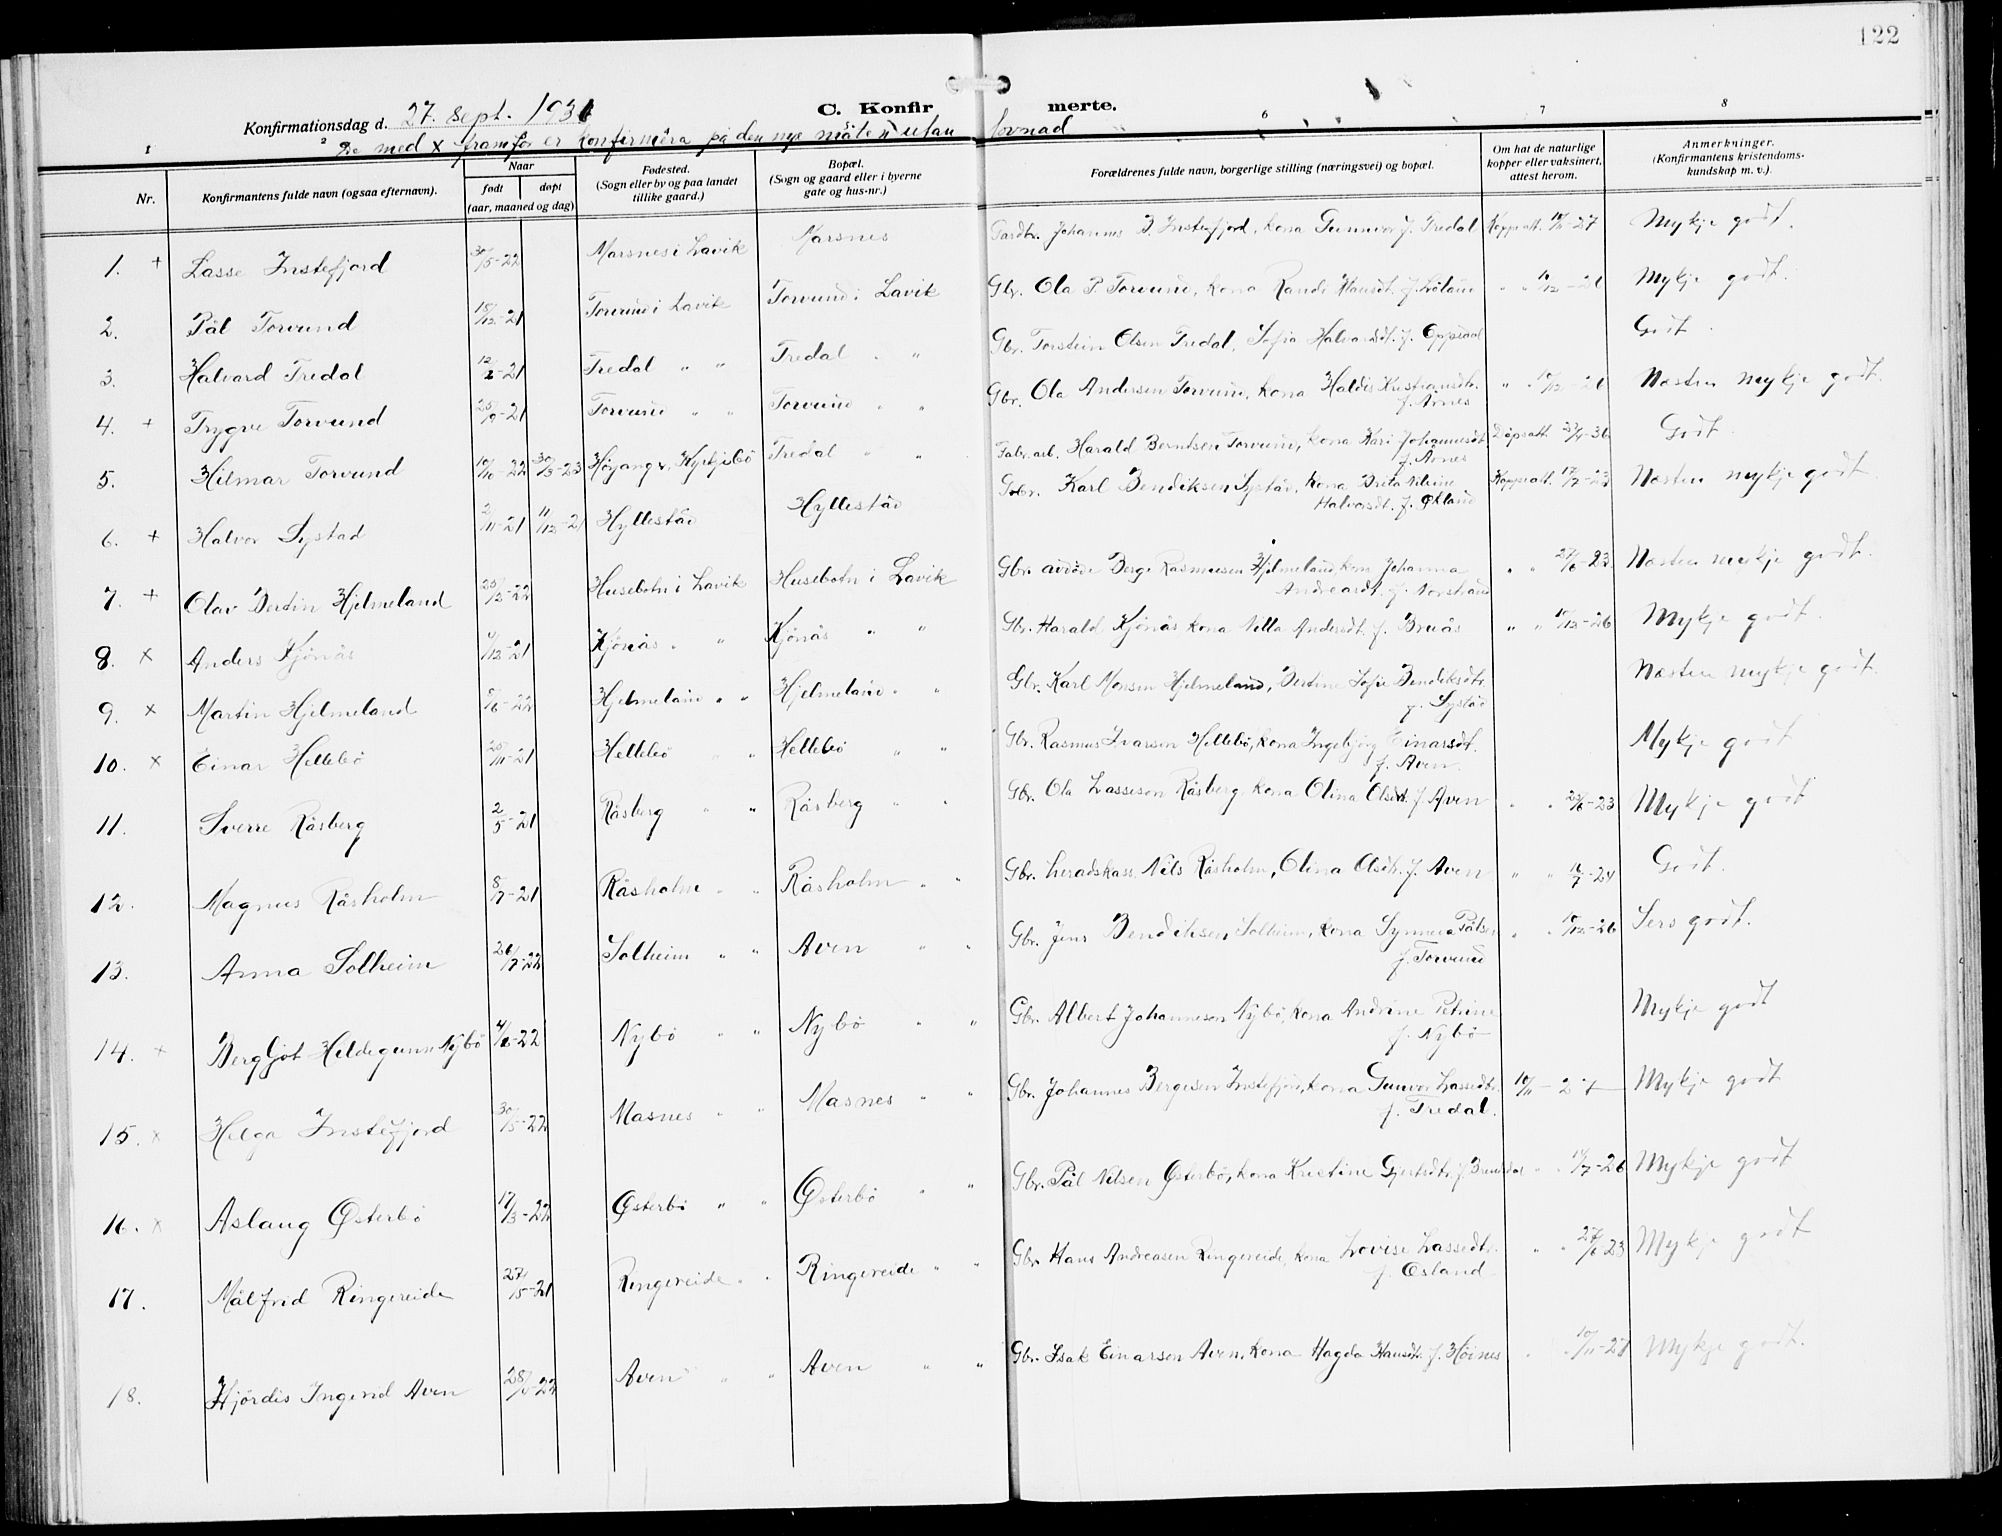 122
C. Konfirmerte.
Konfirmationsdag d. 27. sept. 1936
De med x framfor er konfirmera på den nye måten utan lovnad
1 2 6 7 8
Nr. Konfirmantens fulde navn (ogsaa efternavn). Naar født døpt (aar, maaned og dag) Fødested. (Sogn eller by og paa landet tillike gaard.) Bopæl. (Sogn og gaard eller i byerne gate og hus-nr.) Forældrenes fulde navn, borgerlige stilling (næringsvei) og bopæl. Om hat de naturlige kopper eller vaksinert, attest herom. Anmerkninger. (Konfirmantens kristendomskundskap m. v.).
1. + Lasse Instefjord 30/5-22 Marsnes i Lavik Marsnes Gardbr. Johannes B. Instefjord, kona Gunnvor f. Tredal Koppeatt. 10/11-27 Mykje godt.
2. Pål Torvund 18/12-21 Torvund i Lavik Torvund i Lavik Gbr. Ola P. Torvund, kona Randi Hansdt. Mykje godt.
3. Halvard Tredal 12/2-21 Tredal " " Tredal " " Gbr. Torstein Olsen Tredal, Sofia Halvardsdt. f. Oppedal Godt.
4. + Trygve Torvund 25/9-21 Torvund " " Torvund " " Gbr. Ola Andersen Torvund, kona Haldis Kristiansdtr. f. Arnes " " 10/12-21 Næsten mykje godt.
5. Hilmar Torvund 10/10-22 30/3-23 Høyanger, Kyrkjebø Tredal " " Fabr.arb. Harald Berntsen Torvund, kona Kari Johannesdt. f. Arnes Dåpsatt. Godt.
6. + Halvor Systad 2/11-21 11/12-21 Hyllestad Hyllestad Gbr. Karl Bendiksen Systad, kona Brita Nilsine Halvorsdt. f. Økland Koppeatt. 17/7-23 Næsten mykje godt.
7. + Olav Bertin Hjelmeland 25/3-22 Husebotn i Lavik Husebotn i Lavik Gbr. avdøde Berge Rasmusen Hjelmeland, kona Johanna Andreasdt. f. Norstrand " " 27/6-23 Næsten mykje godt.
8. x Anders Kjönås 4/12-21 Kjönås " " Kjönås " " Gbr. Harald Kjönås kona Nilla Andersdt. f. Bruås " " 10/12-26 Mykje godt.
9. x Martin Hjelmeland 5/6-22 Hjelmeland " " Hjelmeland " " Gbr. Karl Monsen Hjelmeland, Bertine Sofie Bendiksdtr f. Systad Næsten mykje godt.
10. x Einar Hellebö 25/11-21 Hellebö " Hellebö " " Gbr. Rasmus Ivarsen Hellebö, kona Ingebjørg Einarsdt. f. Aven. Mykje godt
11. Sverre Råsberg 2/5-21 Råsberg " " Råsberg " " Gbr. Ola Lasseson Råsberg, kona Olina Olsdt. f. Aven " " 23/6-23 Mykje godt
12. Magnus Råsholm 8/7-21 Råsholm " " Råsholm " " Gbr. heradskass. Nils Råsholm, Olina Olsdt. f. Aven " " Godt.
13. Anna Solheim 26/7-22 Solheim " " Aven " " Gbr. Jens Bendiksen Solheim, kona Synneva Pålsdt f. Torvund " " 10/12-26 Sers godt.
14. + Bergljot Hildegunn Nybö 4/6-22 Nybö " " Nybö " " Gbr. Albert Johanneson Nybö, kona Andrine Petrine f. Nybö Mykje godt
15. x Helga Instefjord 30/5-22 Masnes " " Masnes " " Gbr. Johannes Bergesen Instefjord, kona Gunvor Lassedtr. f. Tredal. 10/11-27 Mykje godt
16. x Aslaug Østerbö 17/3-22 Østerbö " " Østerbö " " Gbr. Pål Nilsen Østerbö, kona Kristine Gjertsdtr. f. " " Mykje godt
17. Målfrid Ringereide 27/5-21 Ringereide " " Ringereide " " Gbr. Hans Andreasen Ringereide, kona Lovise Lassedtr. f. Osland " " 27/6-23 Mykje godt
18. Hjördis Ingerid Aven Aven " " Aven " " Gbr. Isak Einarsen Aven, kona Magda Hansdt. f. Höines " " 10/11-27 Mykje godt.